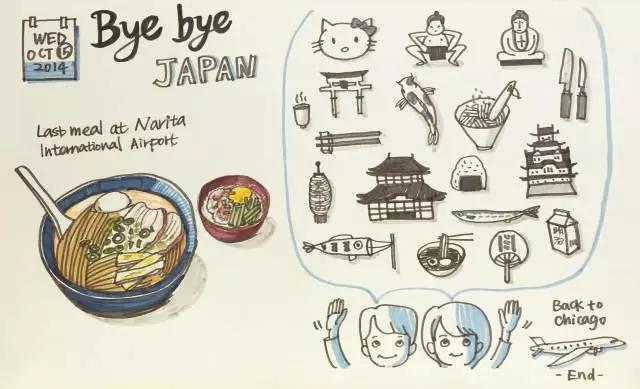 WED
OCT 15
2014
Bye bye
JAPAN
Last meal at Narita
International Airport
Back to
Chicago
- End -